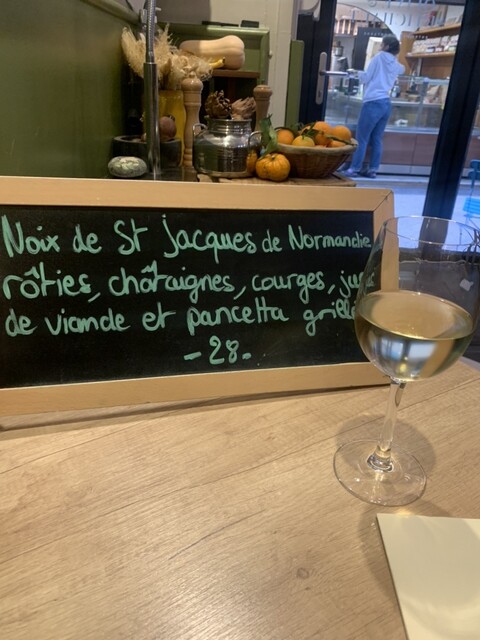 Noix de St Jacques de Normandie
rôties, châtaignes, courges, jus
de viande et pancetta grillée
- 28 -